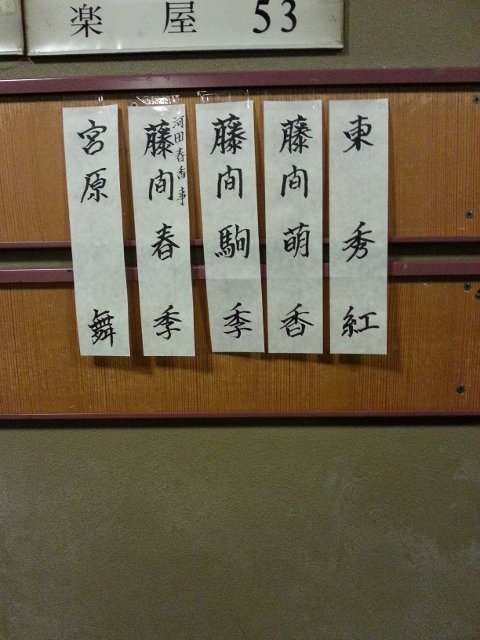 楽屋 53
東 秀紅
藤間萌香
藤間駒季
河田春香事
藤間春季
宮原 舞